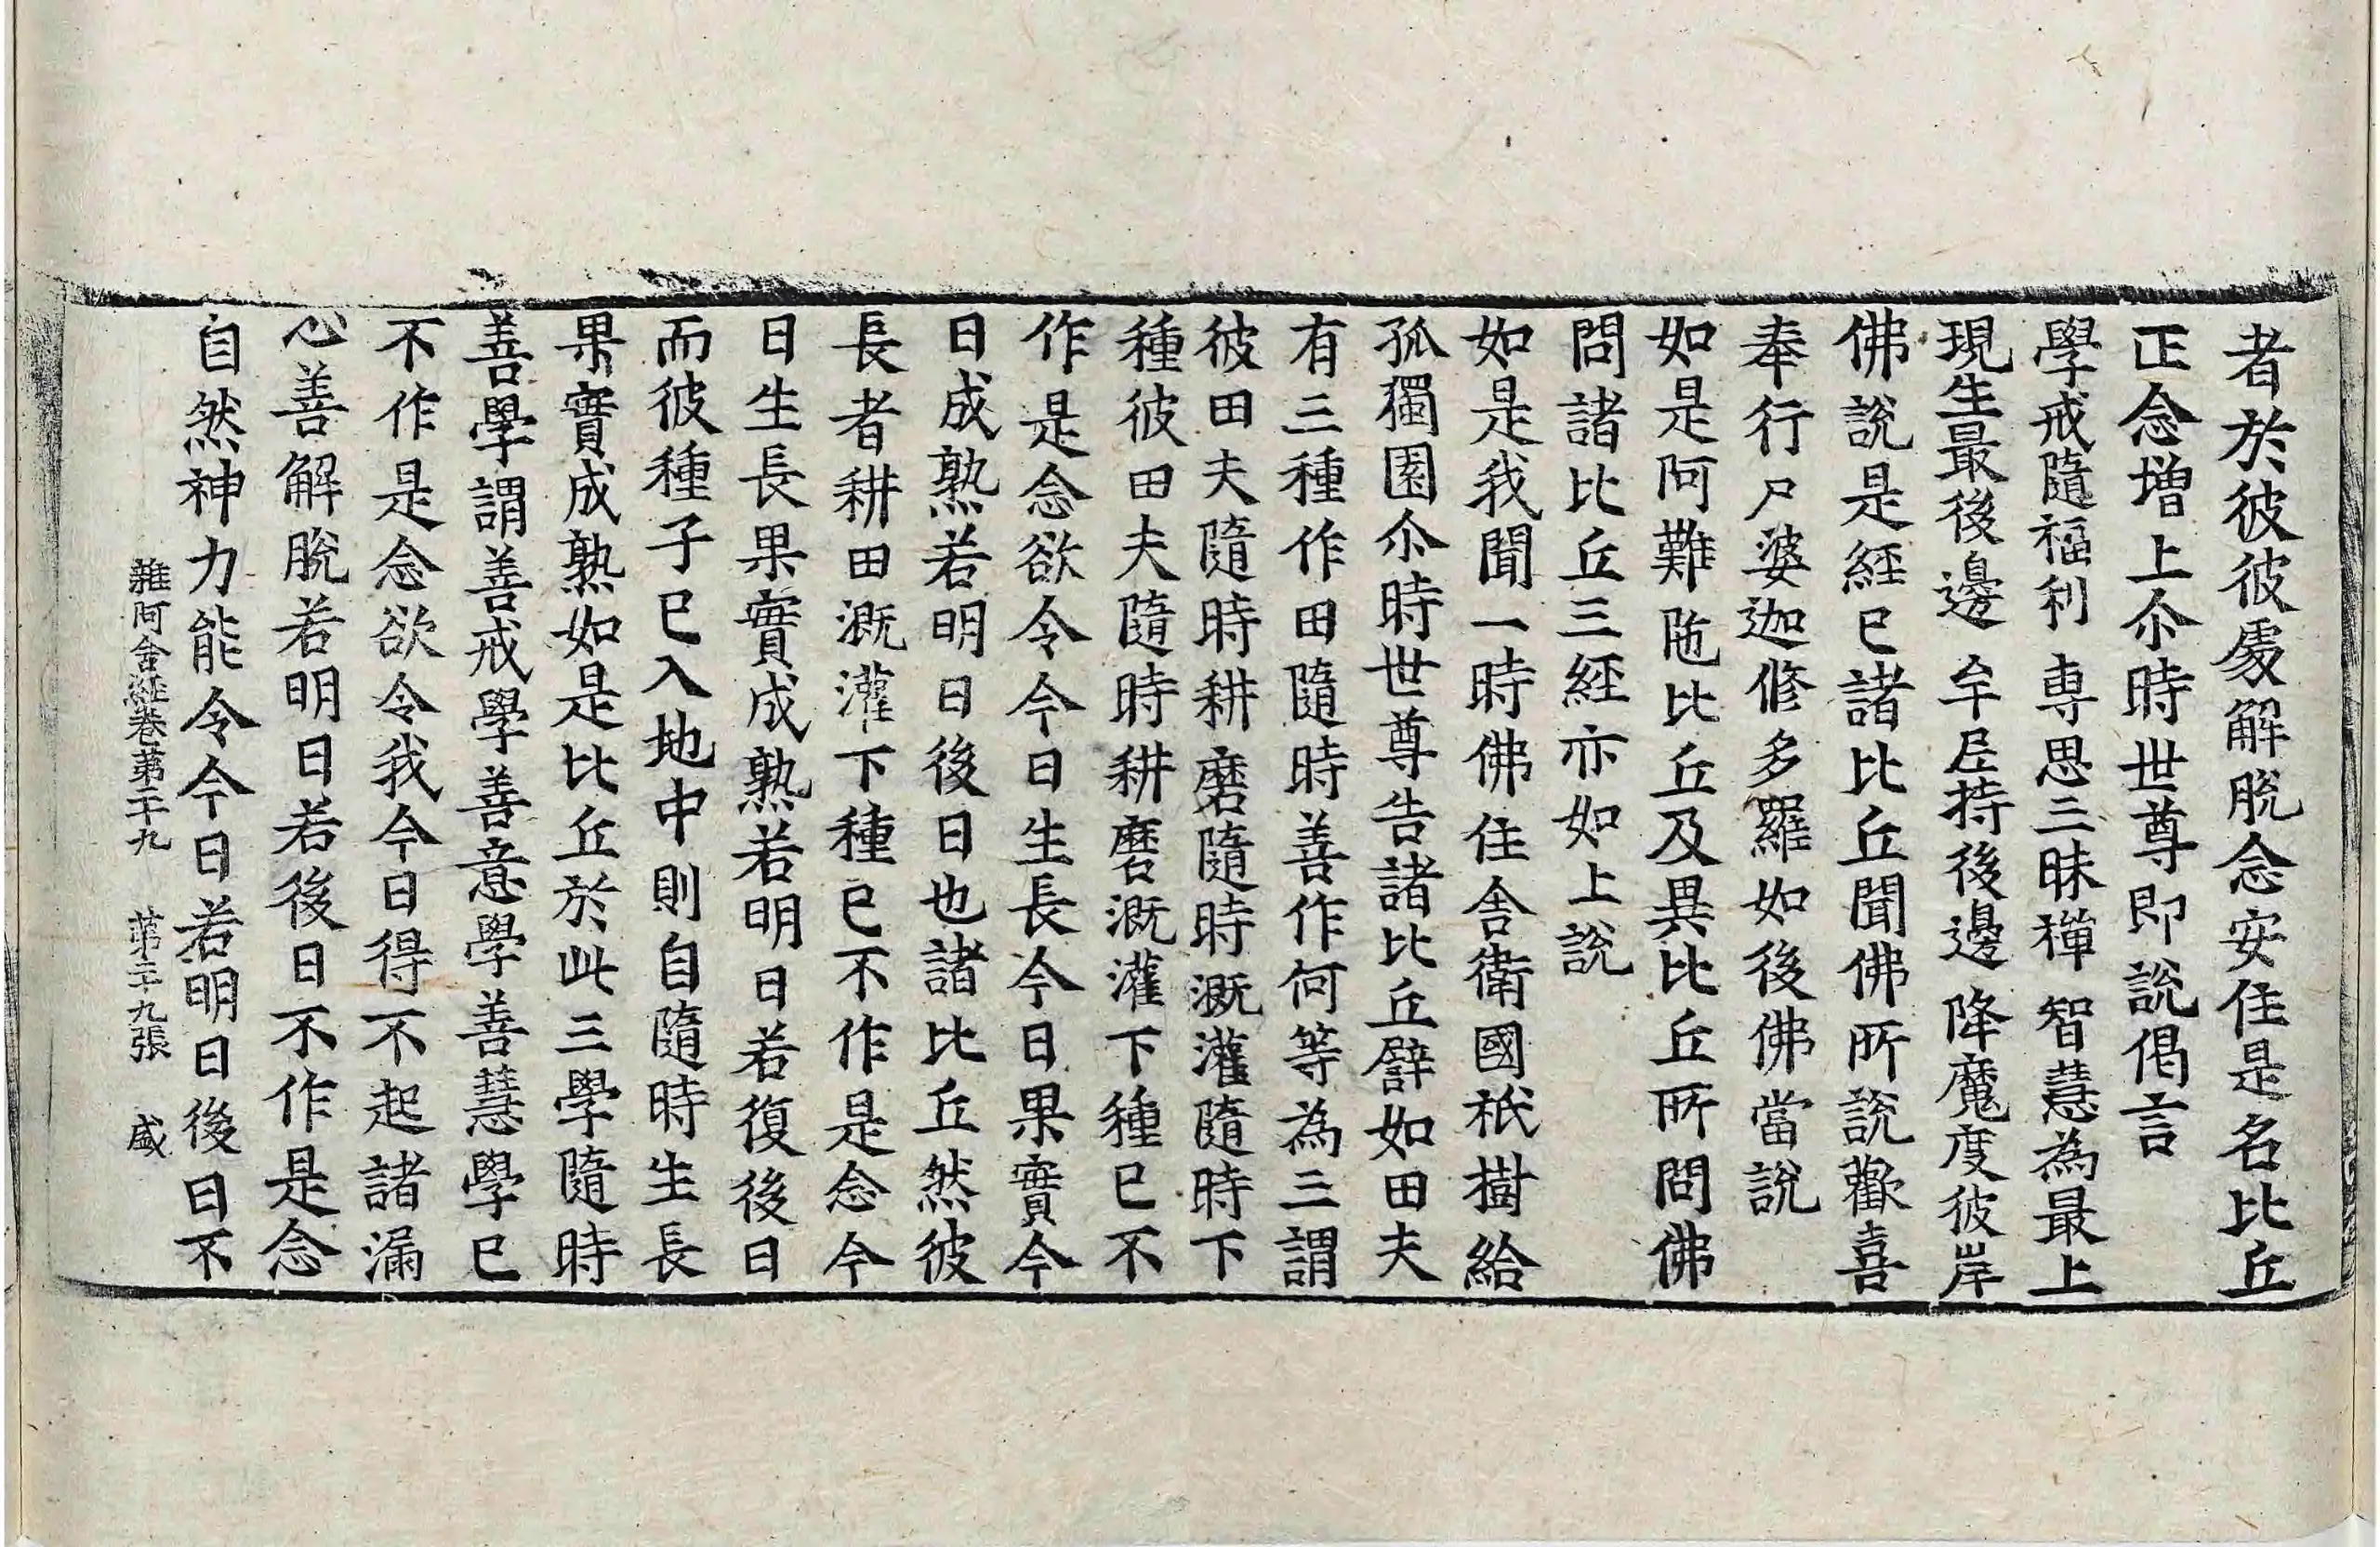 者於彼彼處解脫念安住是名比丘
正念增上尒時世尊即說偈言
學戒隨福利 專思三昧禪 智慧為最上
現生最後邊 牟尼持後邊 降魔度彼岸
佛說是經已諸比丘聞佛所說歡喜
奉行尸婆迦修多羅如後佛當說
如是阿難陁比丘及異比丘所問佛
問諸比丘三經亦如上說
如是我聞一時佛住舍衛國祇樹給
孤獨園尒時世尊告諸比丘譬如田夫
有三種作田隨時善作何等為三謂
彼田夫隨時耕磨隨時溉灌隨時下
種彼田夫隨時耕磨溉灌下種已不
作是念欲令今日生長今日果實今
日成熟若明日後日也諸比丘然彼
長者耕田溉灌下種已不作是念今
日生長果實成熟若明日若復後日
而彼種子已入地中則自隨時生長
果實成熟如是比丘於此三學隨時
善學謂善戒學善意學善慧學已
不作是念欲令我今日得不起諸漏
心善解脫若明日若後日不作是念
自然神力能令今日若明日後日不
雜阿含經卷第二十九 第二十九張 盛